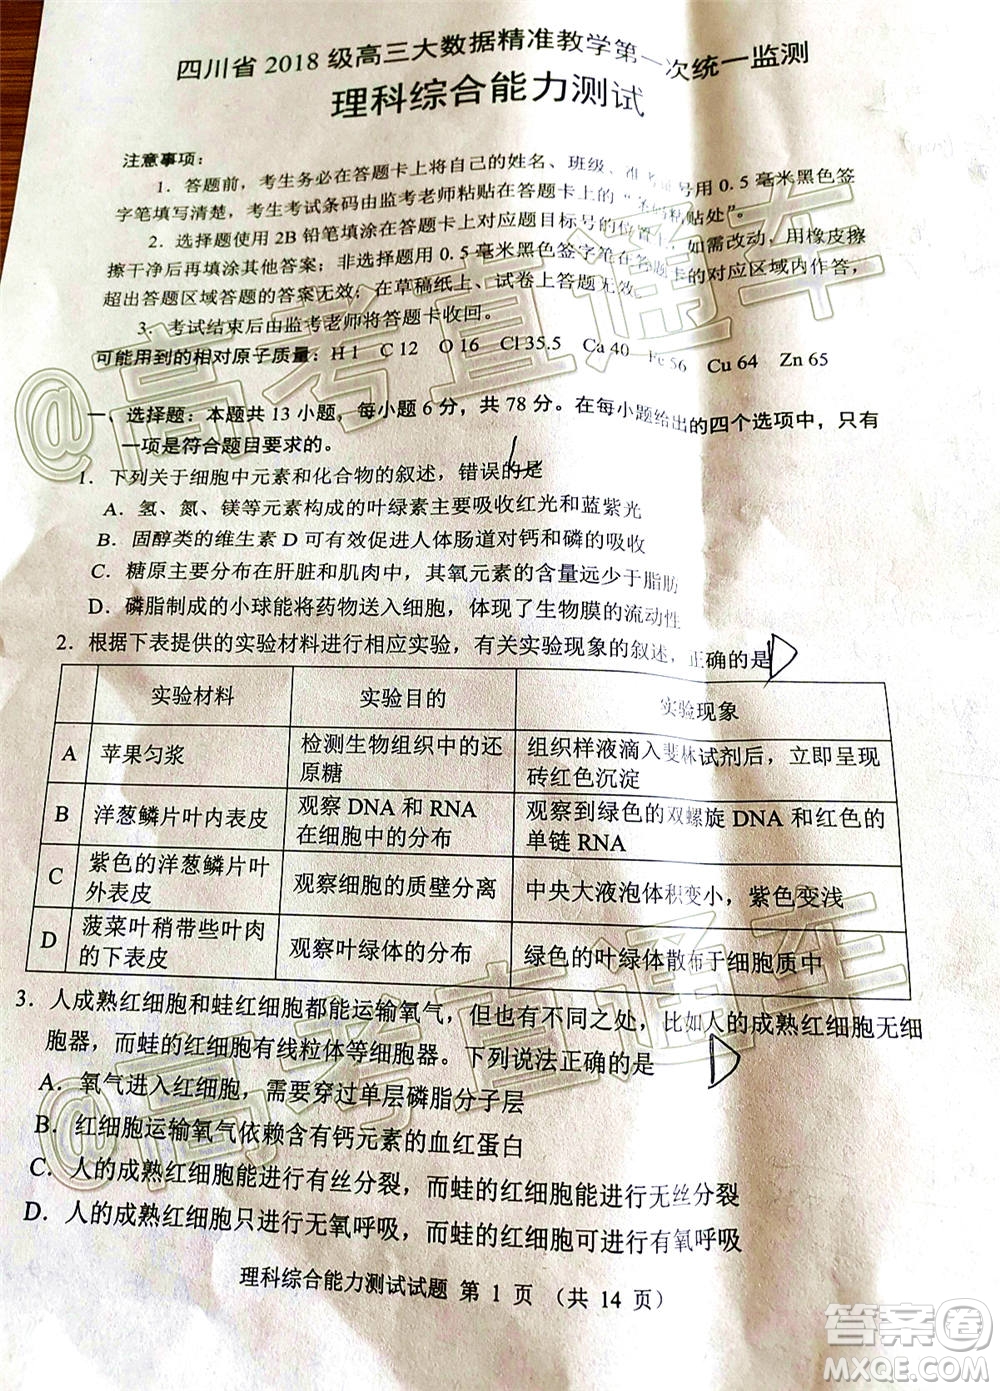 四川省2018级高三大数据精准教学第一次统一监测
理科综合能力测试
注意事项：
1．答题前，考生务必在答题卡上将自己的姓名、班级、准考证号用0.5毫米黑色签
字笔填写清楚，考生考试条码由监考老师粘贴在答题卡上的“条码粘贴处”。
2．选择题使用2B铅笔填涂在答题卡上对应题目标号的位置上，如需改动，用橡皮擦
擦干净后再填涂其他答案；非选择题用0.5毫米黑色签字笔在答题卡的对应区域内作答，
超出答题区域答题的答案无效；在草稿纸上、试卷上答题无效。
3．考试结束后由监考老师将答题卡收回。
可能用到的相对原子质量：H 1 C 12 O 16 Cl 35.5 Ca 40 Fe 56 Cu 64 Zn 65
一、选择题：本题共13小题，每小题6分，共78分。在每小题给出的四个选项中，只有
一项是符合题目要求的。
1．下列关于细胞中元素和化合物的叙述，错误的是
A．氢、氮、镁等元素构成的叶绿素主要吸收红光和蓝紫光
B．固醇类的维生素D可有效促进人体肠道对钙和磷的吸收
C．糖原主要分布在肝脏和肌肉中，其氧元素的含量远少于脂肪
D．磷脂制成的小球能将药物送入细胞，体现了生物膜的流动性
2．根据下表提供的实验材料进行相应实验，有关实验现象的叙述，正确的是 D
实验材料 实验目的 实验现象
A 苹果匀浆 检测生物组织中的还原糖 组织样液滴入斐林试剂后，立即呈现砖红色沉淀
B 洋葱鳞片叶内表皮 观察DNA和RNA在细胞中的分布 观察到绿色的双螺旋DNA和红色的单链RNA
C 紫色的洋葱鳞片叶外表皮 观察细胞的质壁分离 中央大液泡体积变小，紫色变浅
D 菠菜叶稍带些叶肉的下表皮 观察叶绿体的分布 绿色的叶绿体散布于细胞质中
3．人成熟红细胞和蛙红细胞都能运输氧气，但也有不同之处，比如人的成熟红细胞无细
胞器，而蛙的红细胞有线粒体等细胞器。下列说法正确的是 D
A．氧气进入红细胞，需要穿过单层磷脂分子层
B．红细胞运输氧气依赖含有钙元素的血红蛋白
C．人的成熟红细胞能进行有丝分裂，而蛙的红细胞能进行无丝分裂
D．人的成熟红细胞只进行无氧呼吸，而蛙的红细胞可进行有氧呼吸
理科综合能力测试试题 第 1 页 （共 14 页）
@高考直通车
@高考直通车
答案圈
MXQE.COM